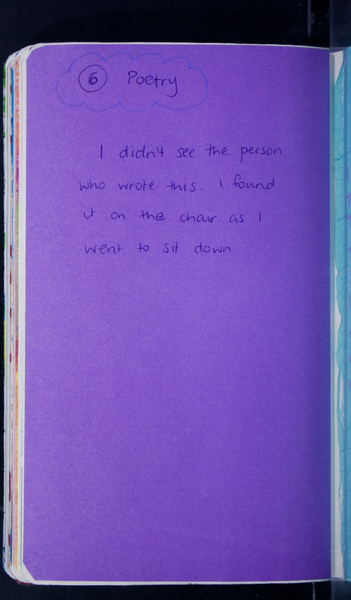 6 Poetry
I didn't see the person
who wrote this. I found
it on the chair as I
went to sit down